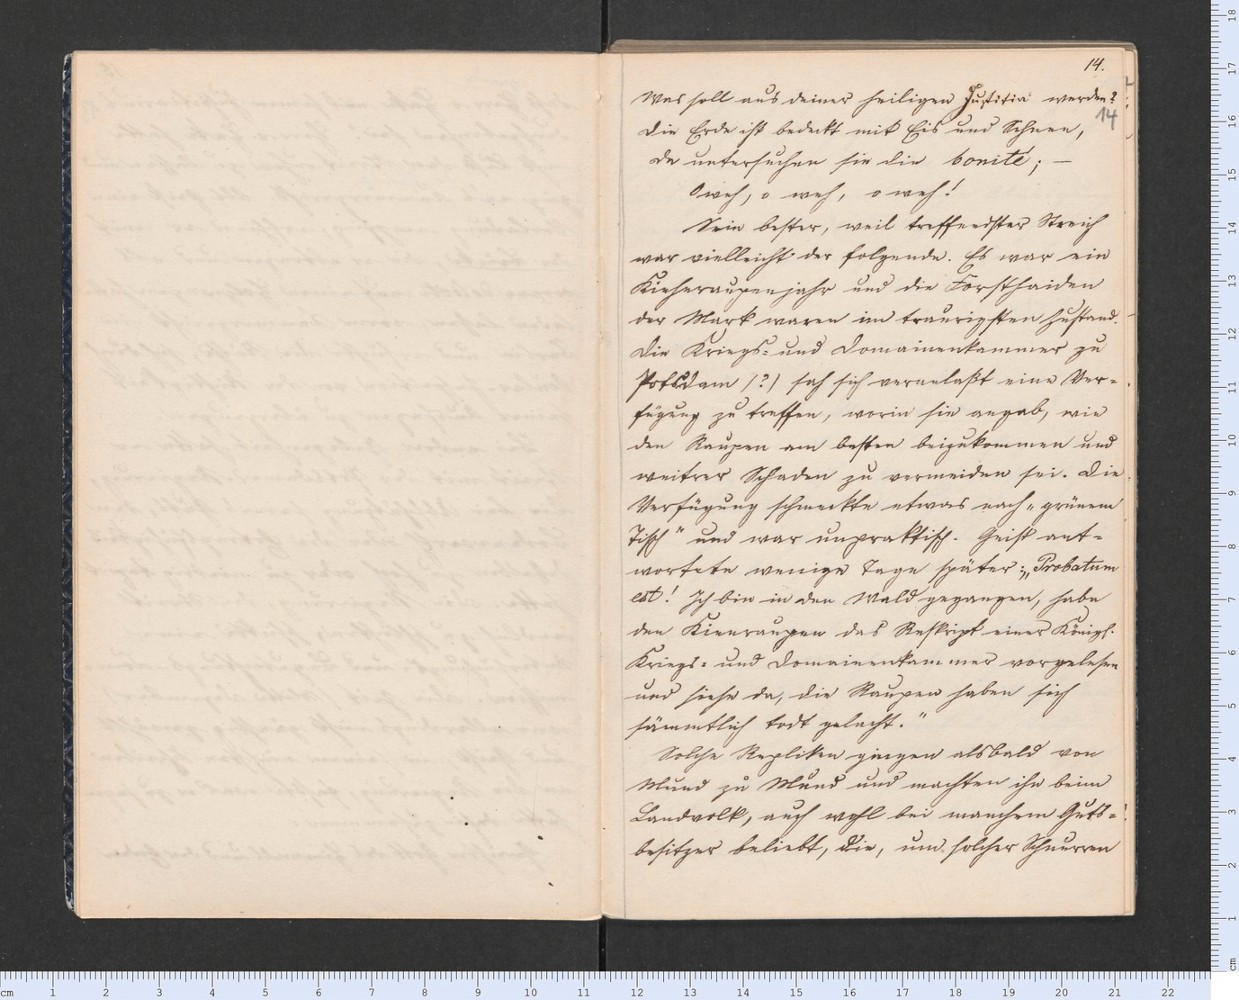 14.
Was soll aus deiner heiligen Justitia werden?
14
Die Erde ist bedekt mit Eis und Schnee,
Da untersuchen sie die bonité; —
O weh, o weh, o weh!
Sein bester, weil treffendster Streich
war vielleicht der folgende. Es war ein
Kieheraupenjahr und die Forsthaiden
der Mark waren im traurigsten Zustand.
Die Kriegs- und Domainenkammer zu
Potsdam (?) sah sich veranlaßt eine Ver-
fügung zu treffen, worin sie angab, wie
den Raupen am besten beizukommen und
weitrer Schaden zu vermeiden sei. Die
Verfügung schmeckte etwas nach „grünem
Tisch" und war unpraktisch. Geist ant-
wortete wenige Tage später: „Probatum
est! Ich bin in den Wald gegangen, habe
den Kienraupen das Reskript einer Königl.
Kriegs- und Domainenkammer vorgelesen
und siehe da, die Raupen haben sich
sämmtlich todt gelacht."
Solche Repliken gingen alsbald von
Mund zu Mund und machten ihn beim
Landvolk, auch wohl bei manchem Guts-
besitzer beliebt, die, um solcher Schnurren